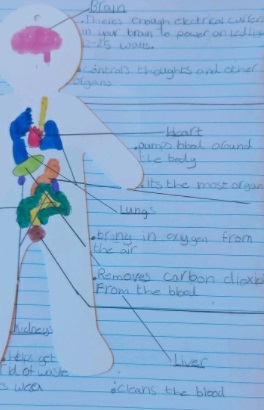 Brain
•Theres enough electrical curren
in your brain to power an
-25 watts.
•Controls thoughts and other
organs
Heart
•pump blood around
the body
•Its the most organ
Lungs
•bring in oxygen from
the air
•Removes carbon dioxid
From the blood
Kidneys
•helps get
rid of waste
Liver
•cleans the blood